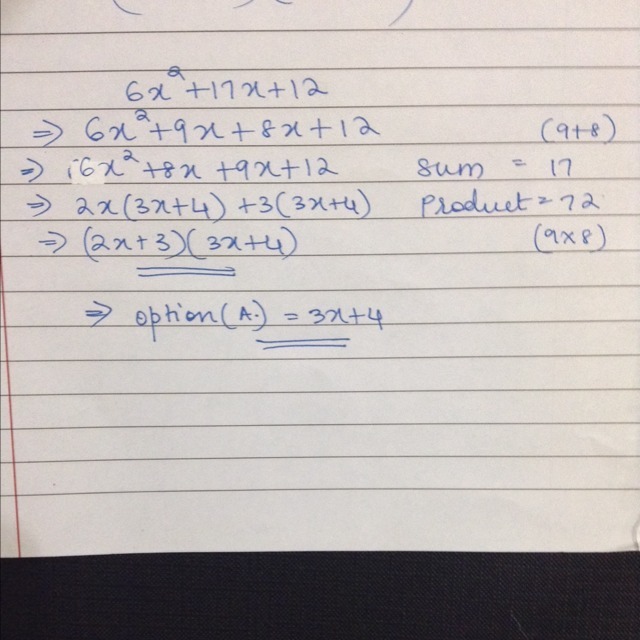 6x²+17x+12
⇒ 6x²+9x+8x+12 (9+8)
⇒ 6x²+8x+9x+12 sum = 17
⇒ 2x(3x+4)+3(3x+4) product=72
⇒ (2x+3)(3x+4) (9x8)
⇒ option(A.) = 3x+4